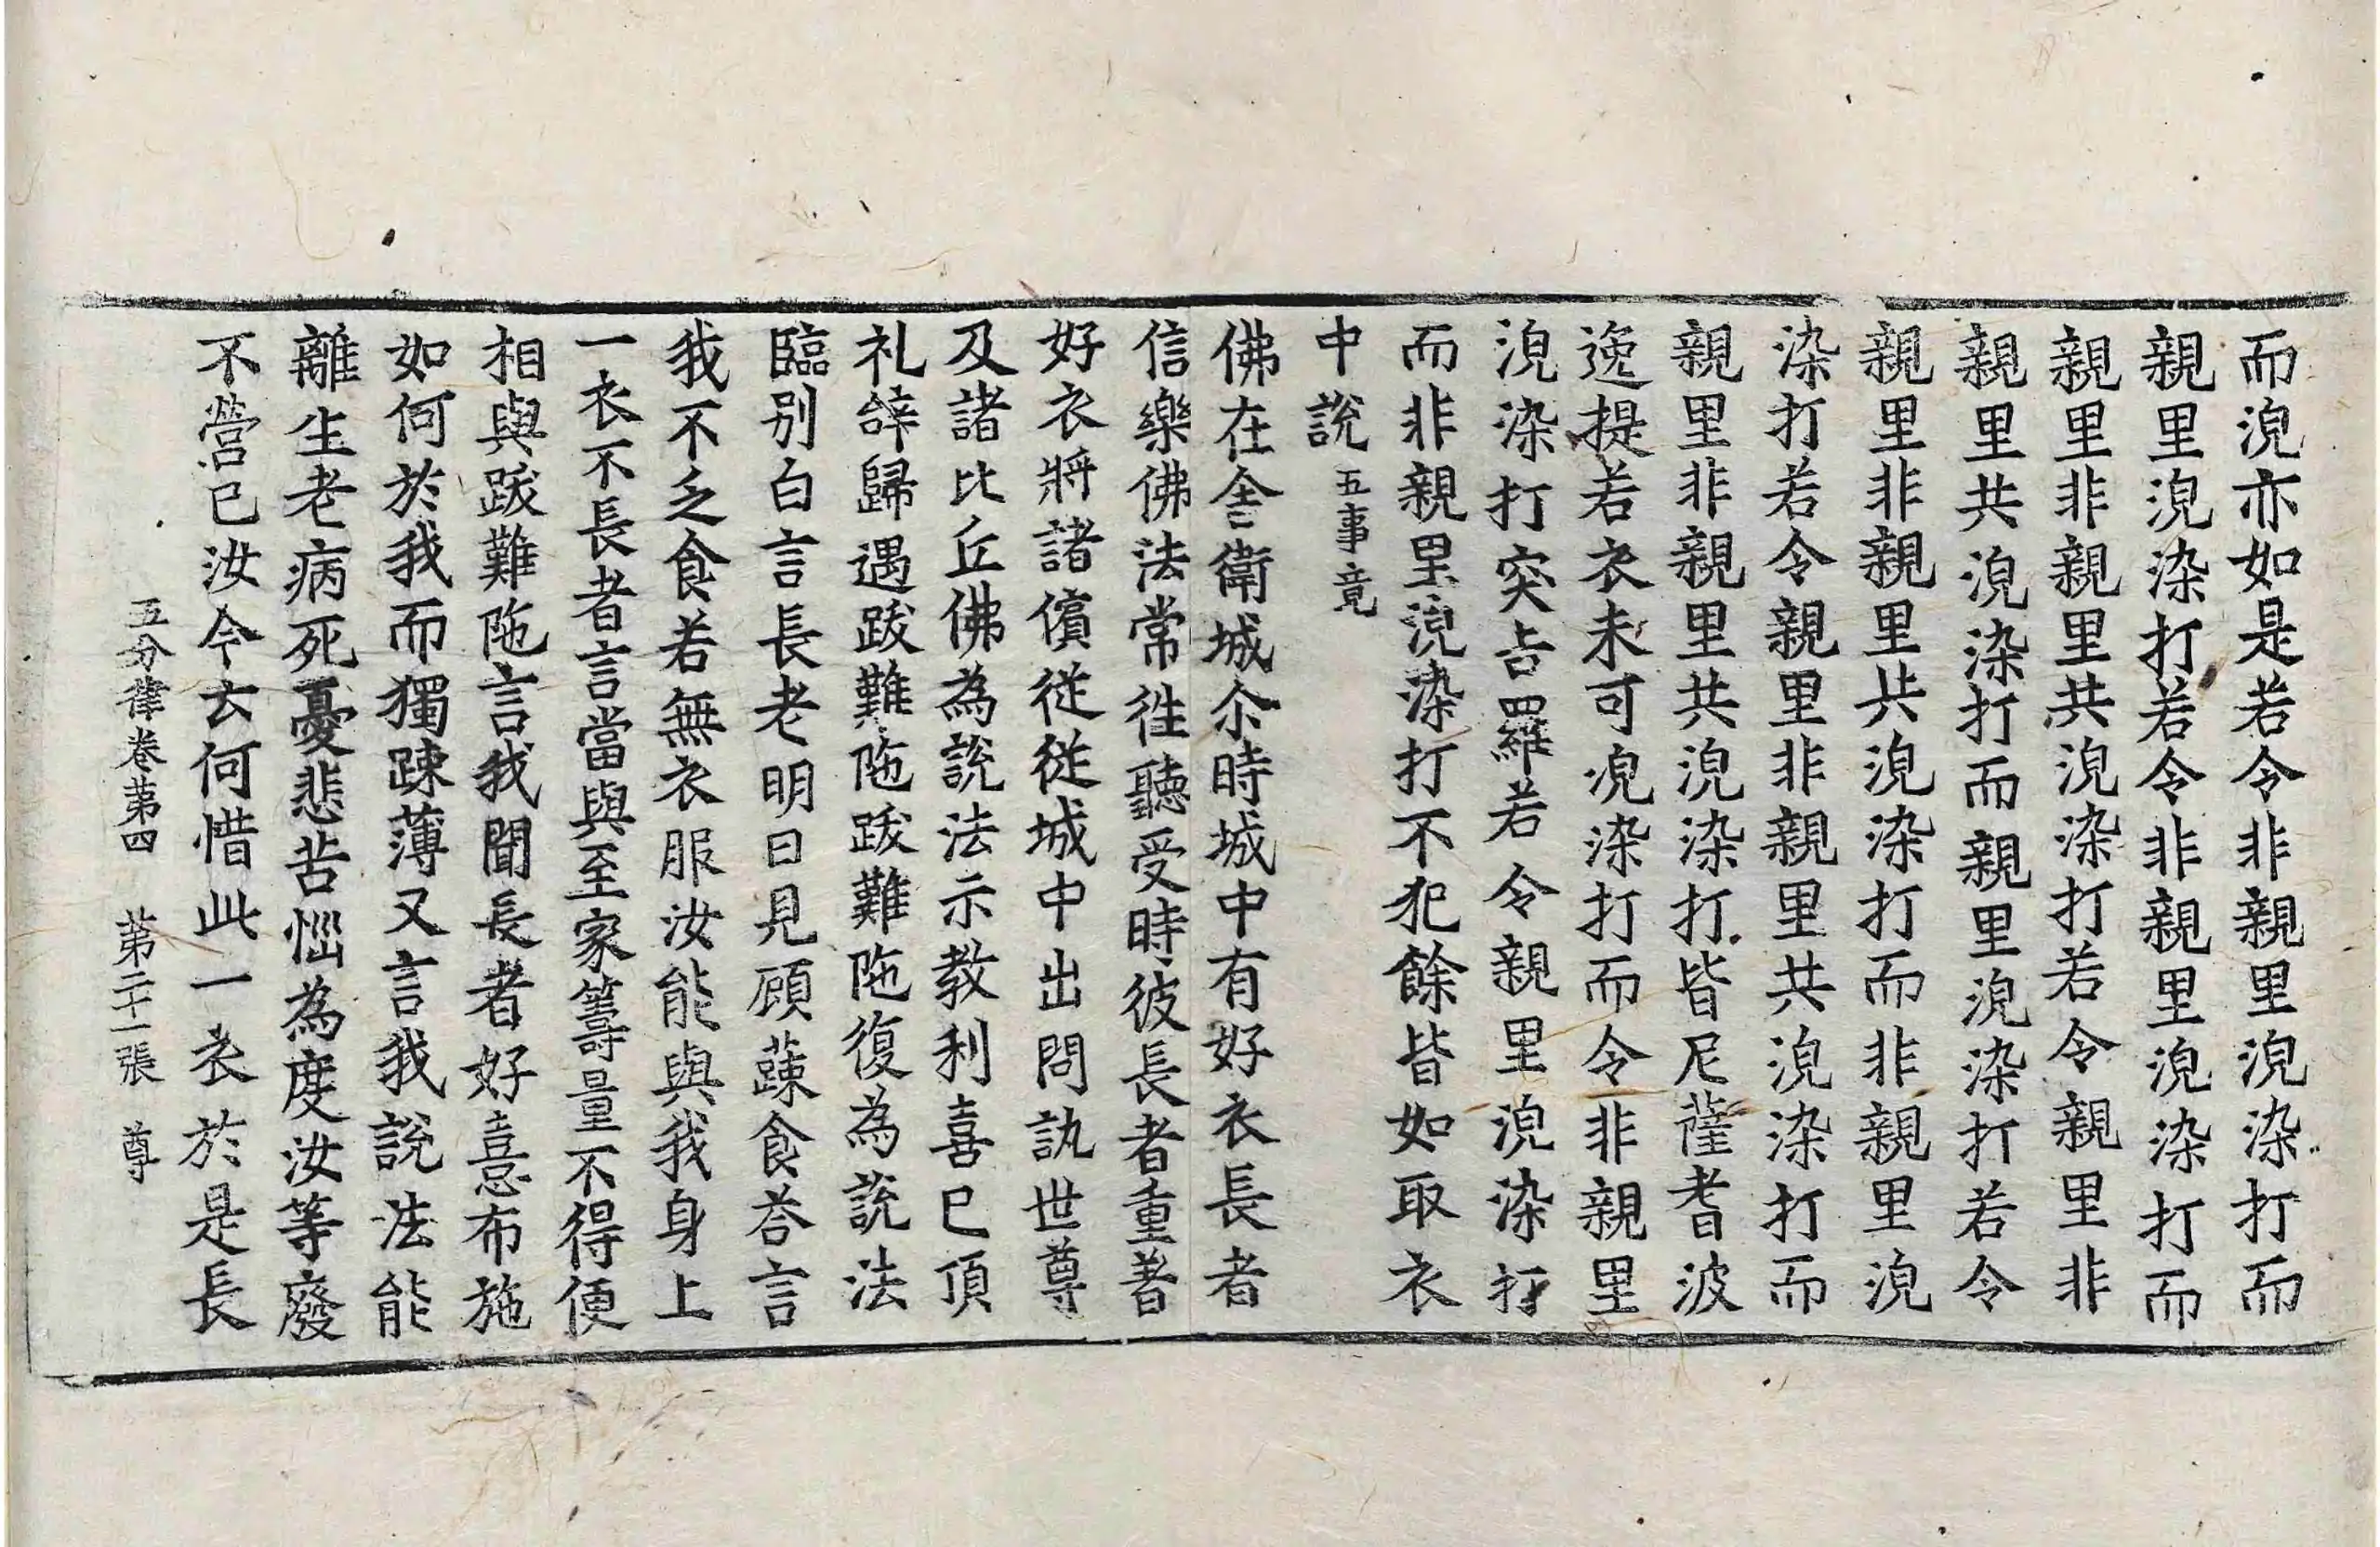 而浣亦如是若令非親里浣染打而
親里浣染打若令非親里浣染打而
親里非親里共浣染打若令親里非
親里共浣染打而親里浣染打若令
親里非親里共浣染打而非親里浣
染打若令親里非親里共浣染打而
親里非親里共浣染打皆尼薩耆波
逸提若衣未可浣染打而令非親里
浣染打突吉羅若令親里浣染打
而非親里浣染打不犯餘皆如取衣
中說五事竟
佛在舍衛城尒時城中有好衣長者
信樂佛法常往聽受時彼長者重著
好衣將諸儐從從城中出問訊世尊
及諸比丘佛為說法示教利喜已頂
礼辝歸遇跋難陁跋難陁復為說法
臨别白言長老明日見顧蔬食荅言
我不乏食若無衣服汝能與我身上
一衣不長者言當與至家籌量不得便
相與跋難陁言我聞長者好憙布施
如何於我而獨踈薄又言我說法能
離生老病死憂悲苦惱為度汝等廢
不營已汝今云何惜此一衣於是長
五分律卷第四 第二十一張 尊